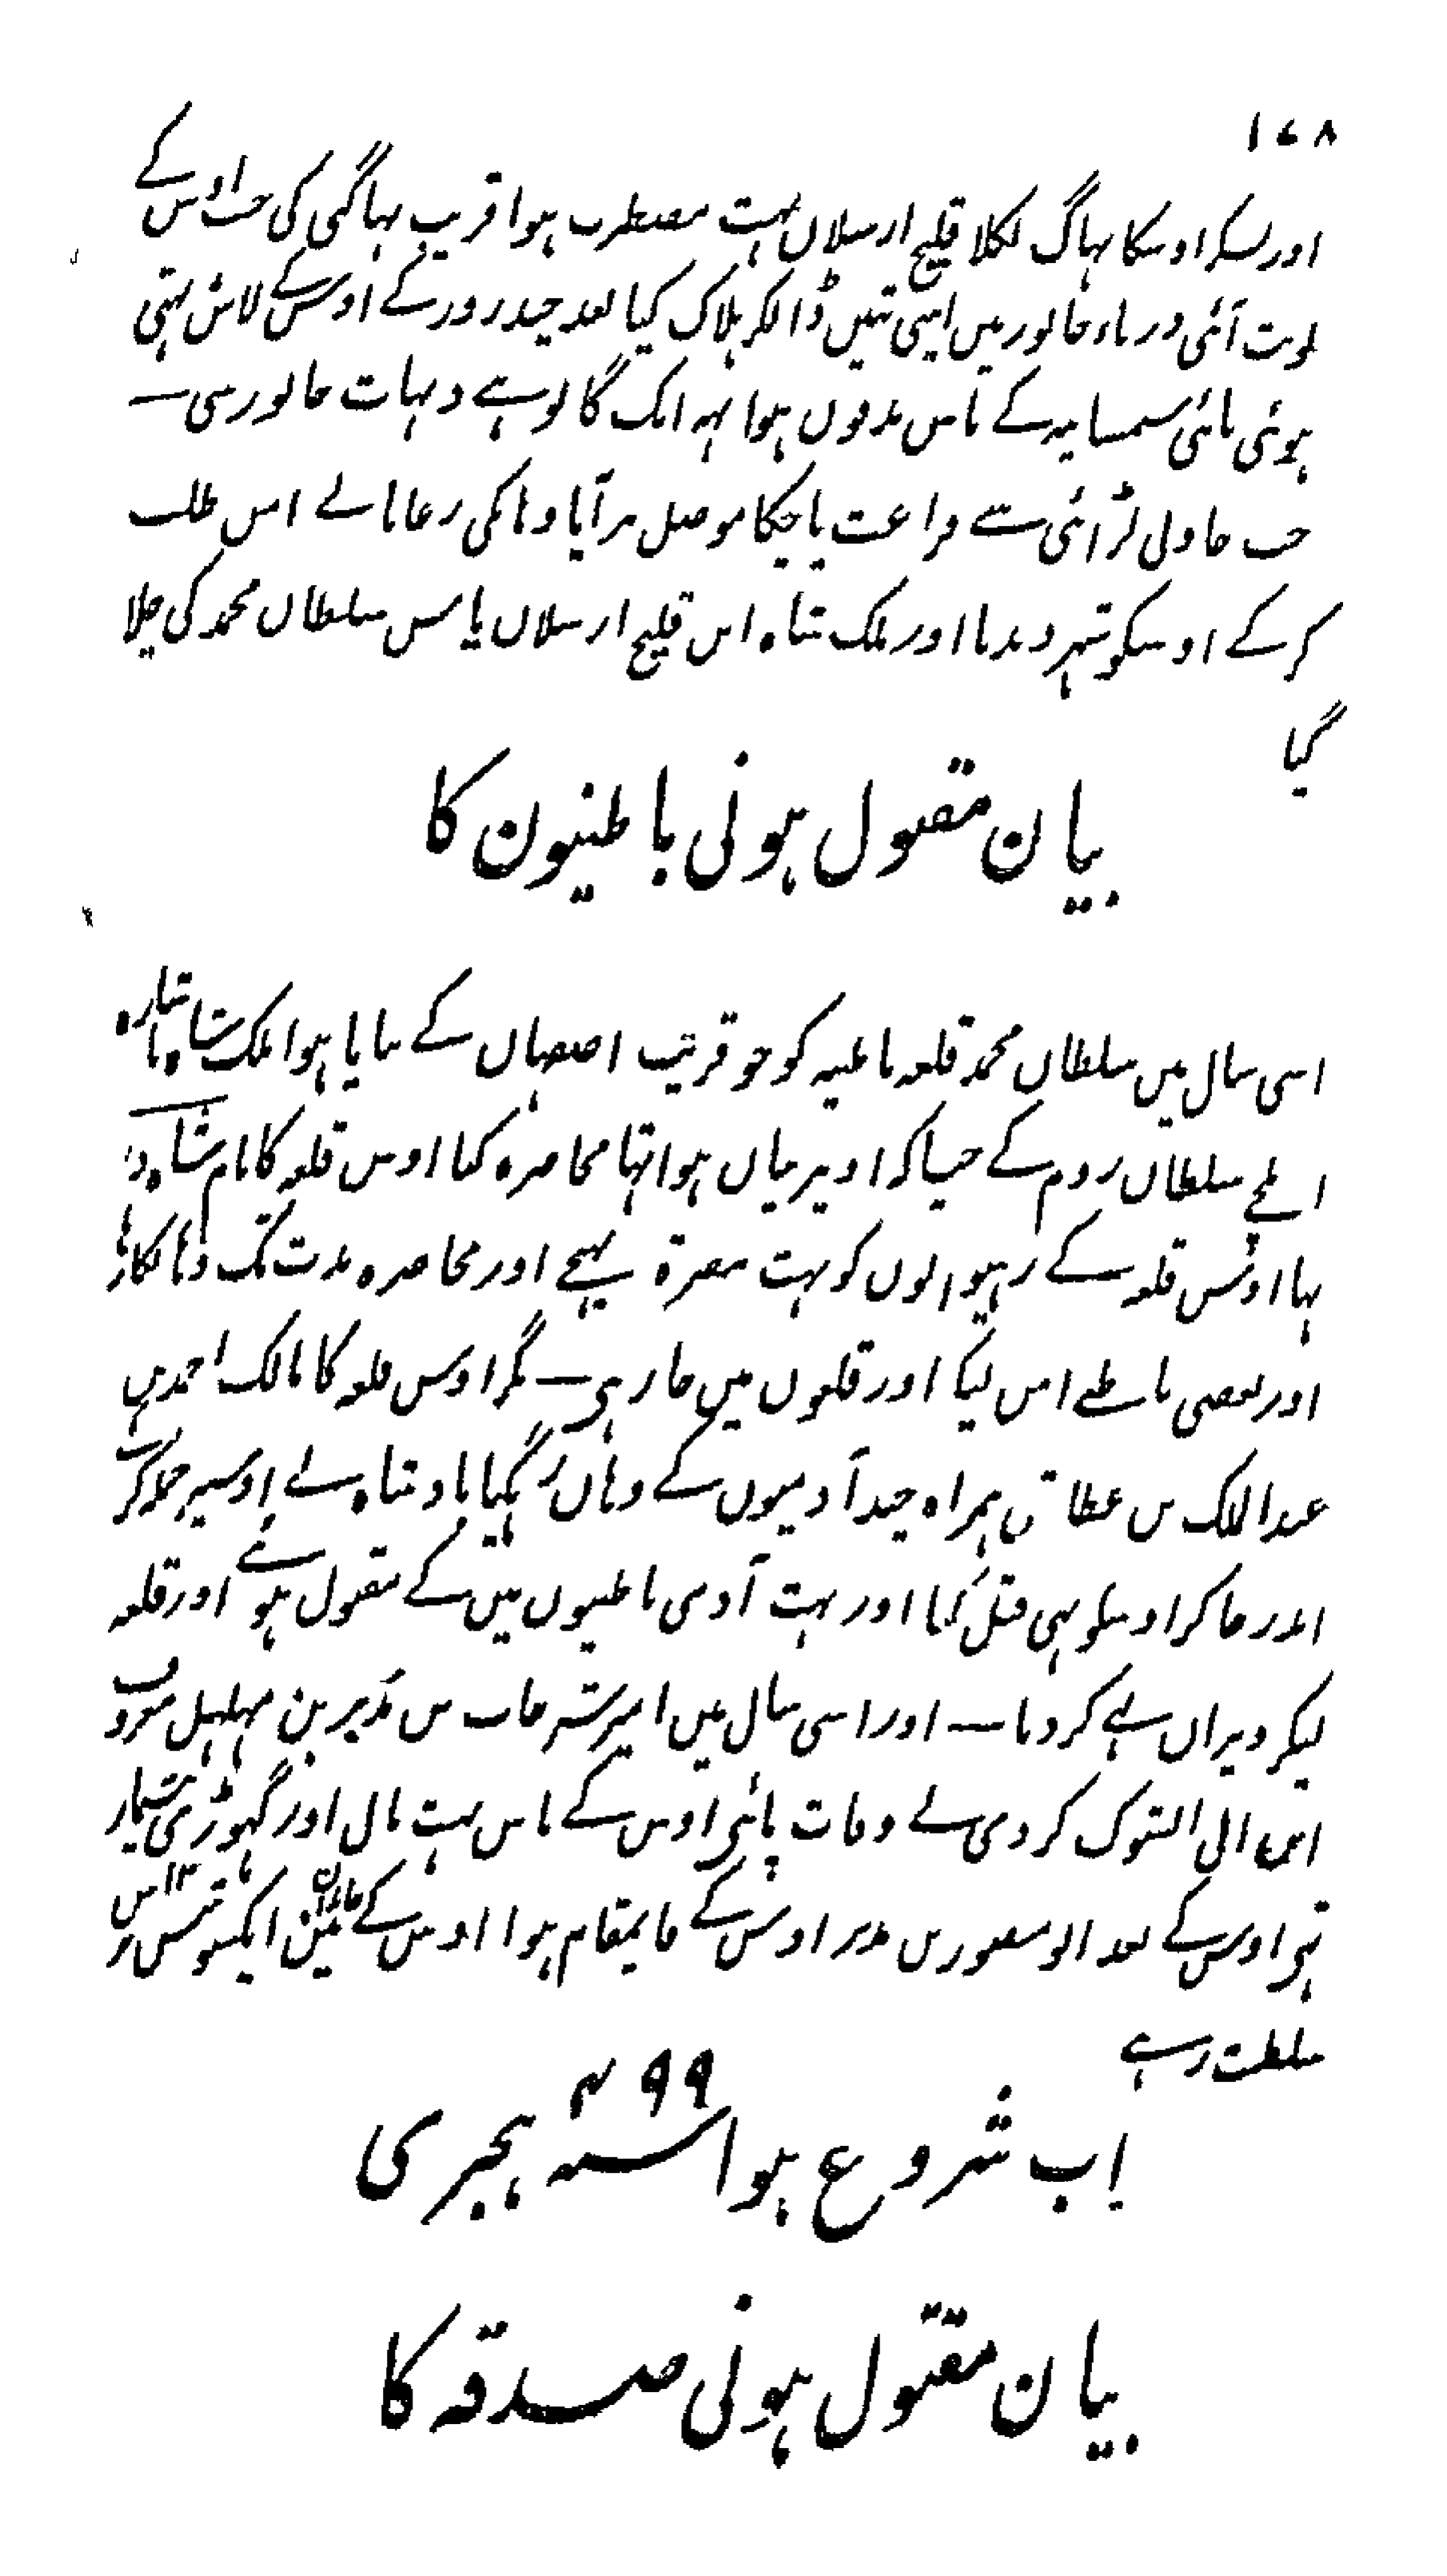 ۱۷۸
اور لشکر اوسکا بہاگ نکلا قلیج ارسلان بہت مضطرب ہوا قریب بہاگنی کی جب اوس کے
نوبت آئی دریاء خابور میں اپنی تئیں ڈالکر ہلاک کیا بعد چند روز کے اوسکے لاش بہتی
ہوئی پائی شمسانیہ کے پاس مدفون ہوا یہہ ایک گانو ہے دیہات خابور سی ــ
جب جاولی لڑائی سے فراغت پاچکا موصل پر آیا وہانکی رعایا نے امن طلب
کرکے اوسکو شہر دیدیا اور ملک شاہ ابن قلیج ارسلان پاس سلطان محمد کی چلا
گیا
بیان مقتول ہونی باطنیون کا
اسی سال میں سلطان محمد قلعہ باطنیہ کو جو قریب اصفہان کے بنایا ہوا ملک شاہ کا باشارہ
ایلچی سلطان روم کے جیساکہ اوپر بیان ہوا تہا محاصرہ کیا اوس قلعہ کا نام شاہ در
تہا اوس قلعہ کے رہنیوالوں کو بہت مضرة پہنچے اور محاصرہ مدت تک وہانکا رہا
اور بعضی باطنے امن لیکر اور قلعوں میں جا رہی ــ مگر اوس قلعہ کا مالک احمد بن
عبدالملک بن عطاش ہمراہ چند آدمیوں کے وہاں رہگیا بادشاہ نے اوسپر حملہ کر
اندر جاکر اوسکو بہی قتل کیا اور بہت آدمی باطنیوں میں کے مقتول ہوئے اور قلعہ
لیکر ویران کردیا ــ اور اسی سال میں امیر سرخاب بن بدیر بن مہلہل معروف
ابن ابی الشوک کردی نے وفات پائی اوس کے پاس بہت مال اور گہوڑی بیشمار
تہی اوسکے بعد ابو منصور بن بدیر اوسکے قایمقام ہوا اوس کے خاندان میں ایکسو تیس برس
سلطنت رہے
اب شروع ہوا سنہ ۴۹۹ ہجری
بیان مقتول ہونی صدقہ کا